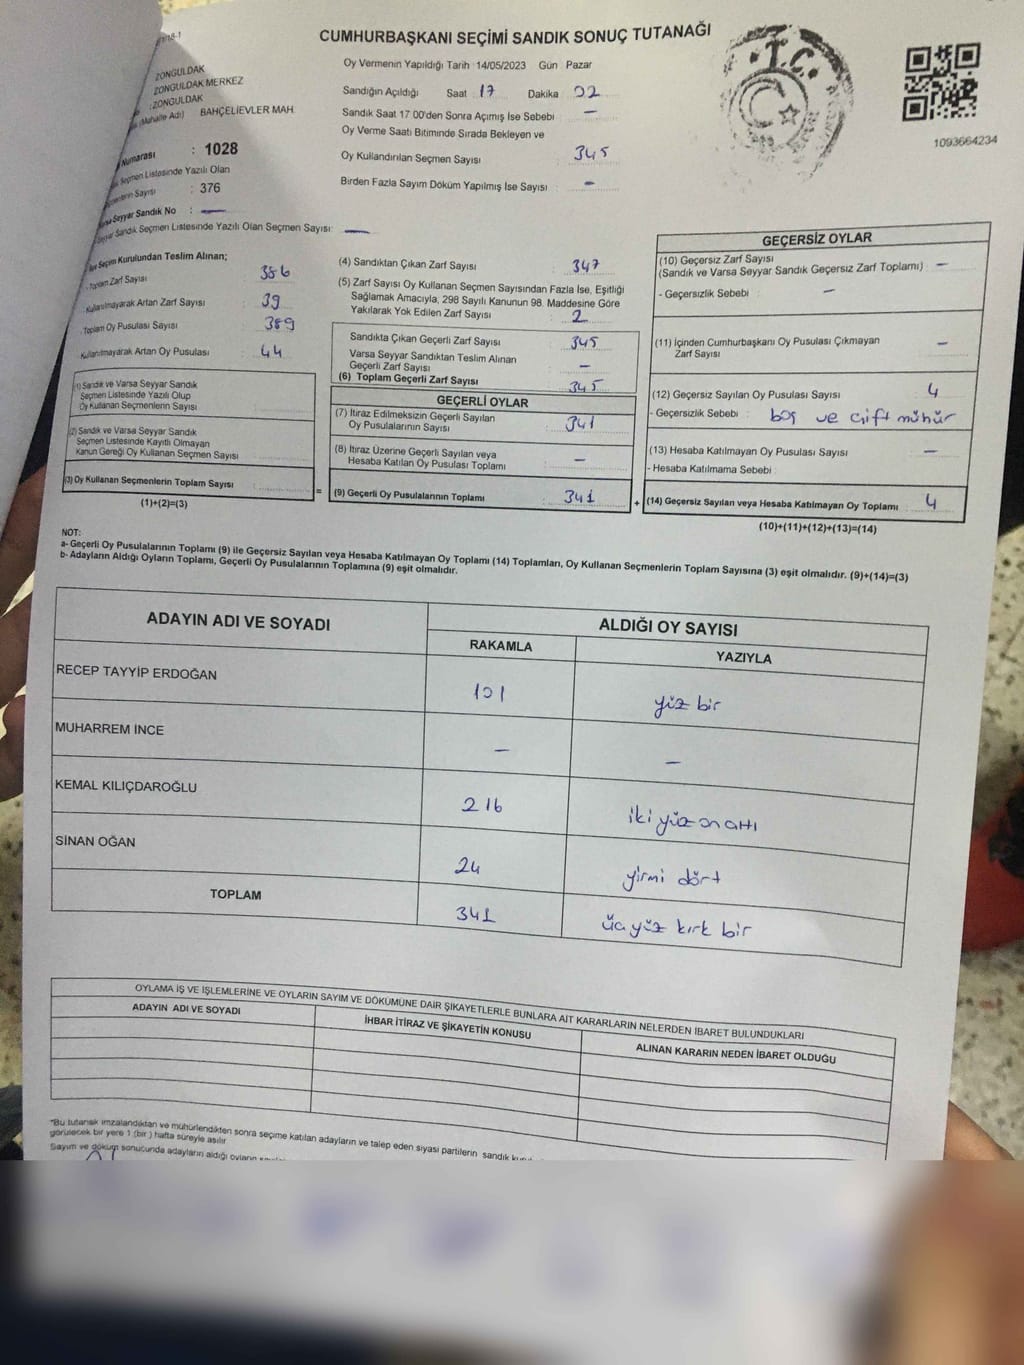 CUMHURBAŞKANI SEÇİMİ SANDIK SONUÇ TUTANAĞI
T.C.
1093664234
ZONGULDAK
ZONGULDAK MERKEZ
ZONGULDAK
(Mahalle Adı) BAHÇELİEVLER MAH.
Numarası : 1028
Seçmen Listesinde Yazılı Olan
Seçmenlerin Sayısı : 376
Varsa Seyyar Sandık No : —
Seyyar Sandık Seçmen Listesinde Yazılı Olan Seçmen Sayısı: —
Oy Vermenin Yapıldığı Tarih : 14/05/2023 Gün Pazar
Sandığın Açıldığı Saat 17 Dakika 02
Sandık Saat 17 00'den Sonra Açımış İse Sebebi : —
Oy Verme Saati Bitiminde Sırada Bekleyen ve
Oy Kullandırılan Seçmen Sayısı : 345
Birden Fazla Sayım Döküm Yapılmış İse Sayısı : –
İlçe Seçim Kurulundan Teslim Alınan;
- Toplam Zarf Sayısı 386
- Kullanılmayarak Artan Zarf Sayısı 39
- Toplam Oy Pusulası Sayısı 389
- Kullanılmayarak Artan Oy Pusulası 44
(1) Sandık ve Varsa Seyyar Sandık
Seçmen Listesinde Yazılı Olup
Oy Kullanan Seçmenlerin Sayısı :
(2) Sandık ve Varsa Seyyar Sandık
Seçmen Listesinde Kayıtlı Olmayan
Kanun Gereği Oy Kullanan Seçmen Sayısı :
(3) Oy Kullanan Seçmenlerin Toplam Sayısı :
(1)+(2)=(3)
(4) Sandıktan Çıkan Zarf Sayısı : 347
(5) Zarf Sayısı Oy Kullanan Seçmen Sayısından Fazla İse, Eşitliği
Sağlamak Amacıyla, 298 Sayılı Kanunun 98. Maddesine Göre
Yakılarak Yok Edilen Zarf Sayısı : 2
Sandıkta Çıkan Geçerli Zarf Sayısı : 345
Varsa Seyyar Sandıktan Teslim Alınan
Geçerli Zarf Sayısı : —
(6) Toplam Geçerli Zarf Sayısı : 345
GEÇERLİ OYLAR
(7) İtiraz Edilmeksizin Geçerli Sayılan
Oy Pusulalarının Sayısı : 341
(8) İtiraz Üzerine Geçerli Sayılan veya
Hesaba Katılan Oy Pusulası Toplamı : —
= (9) Geçerli Oy Pusulalarının Toplamı : 341
GEÇERSİZ OYLAR
(10) Geçersiz Zarf Sayısı
(Sandık ve Varsa Seyyar Sandık Geçersiz Zarf Toplamı) : —
- Geçersizlik Sebebi : —
(11) İçinden Cumhurbaşkanı Oy Pusulası Çıkmayan
Zarf Sayısı : —
(12) Geçersiz Sayılan Oy Pusulası Sayısı : 4
- Geçersizlik Sebebi : boş ve çift mühür
(13) Hesaba Katılmayan Oy Pusulası Sayısı : —
- Hesaba Katılmama Sebebi :
+ (14) Geçersiz Sayılan veya Hesaba Katılmayan Oy Toplamı : 4
(10)+(11)+(12)+(13)=(14)
NOT:
a- Geçerli Oy Pusulalarının Toplamı (9) ile Geçersiz Sayılan veya Hesaba Katılmayan Oy Toplamı (14) Toplamları, Oy Kullanan Seçmenlerin Toplam Sayısına (3) eşit olmalıdır. (9)+(14)=(3)
b- Adayların Aldığı Oyların Toplamı, Geçerli Oy Pusulalarının Toplamına (9) eşit olmalıdır.
ADAYIN ADI VE SOYADI ALDIĞI OY SAYISI
RAKAMLA YAZIYLA
RECEP TAYYİP ERDOĞAN 101 yüz bir
MUHARREM İNCE — —
KEMAL KILIÇDAROĞLU 216 iki yüz on altı
SİNAN OĞAN 24 yirmi dört
TOPLAM 341 üç yüz kırk bir
OYLAMA İŞ VE İŞLEMLERİNE VE OYLARIN SAYIM VE DÖKÜMÜNE DAİR ŞİKAYETLERLE BUNLARA AİT KARARLARIN NELERDEN İBARET BULUNDUKLARI
ADAYIN ADI VE SOYADI İHBAR İTİRAZ VE ŞİKAYETİN KONUSU ALINAN KARARIN NEDEN İBARET OLDUĞU
*Bu tutanak imzalandıktan ve mühürlendikten sonra seçime katılan adayların ve talep eden siyasi partilerin sandık
görülecek bir yere 1 (bir ) hafta süreyle asılır
Sayım ve döküm sonucunda adayların aldığı oyların